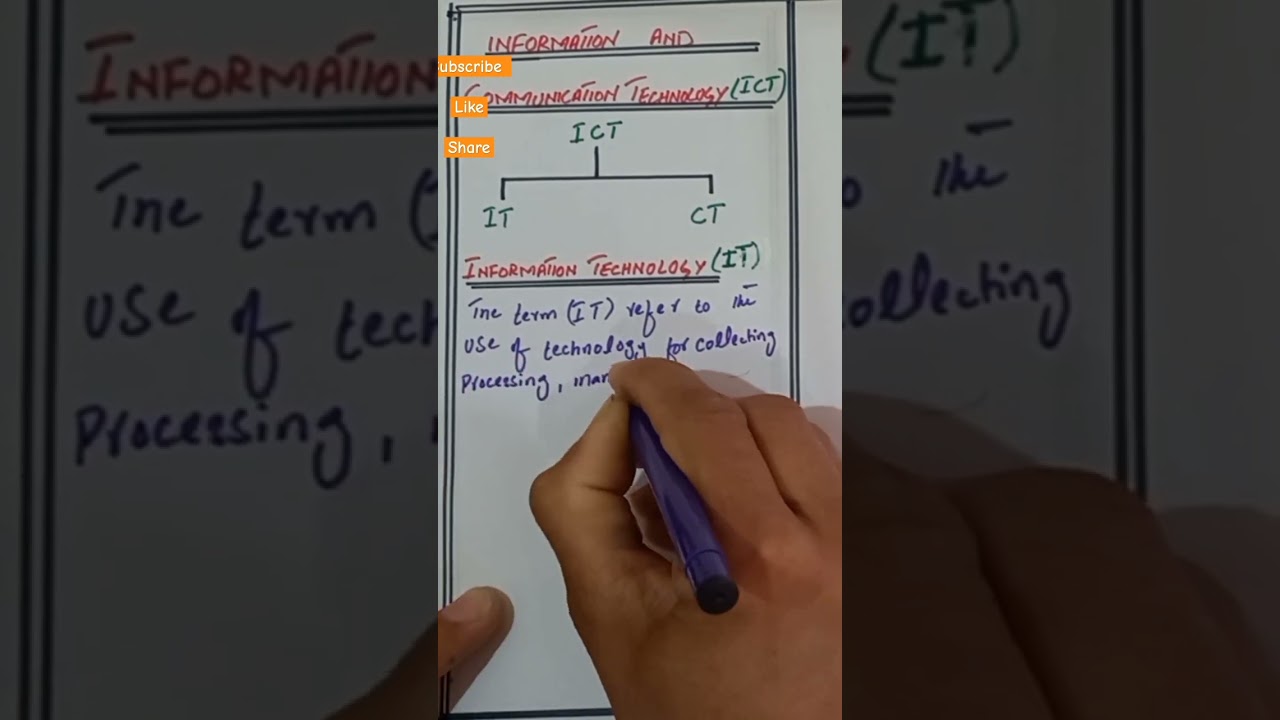 INFORMATION AND
COMMUNICATION TECHNOLOGY (ICT)
ubscribe
Like
Share
ICT
IT CT
INFORMATION TECHNOLOGY (IT)
The term (IT) refer to the
use of technology for collecting
Processing,